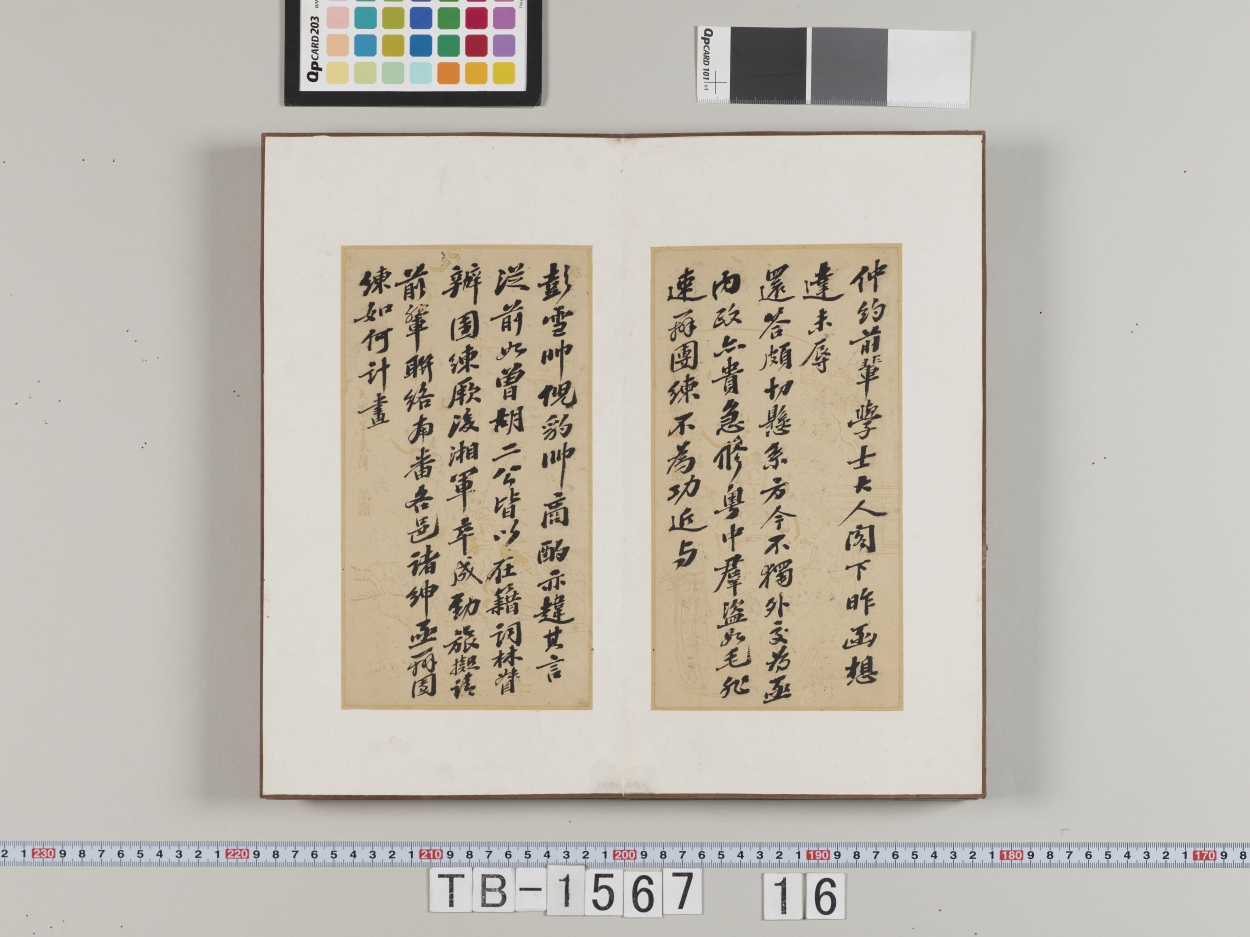 仲約前輩學士大人閣下昨函想
達未辱
還答頗切懸系方今不獨外交為亟
內政亦貴急修粵中群盜如毛非
速辦團練不為功近与
彭雪帅倪豹帅商酌亦韙其言
從前如曾胡二公皆以在籍詞林督
辦團練厥後湘軍卒成勁旅擬請
前輩聯絡南番各邑諸紳亟辦團
練如何計畫
QpCARD 203
QpCARD 101 v4
2 1 230 9 8 7 6 5 4 3 2 1 220 9 8 7 6 5 4 3 2 1 210 9 8 7 6 5 4 3 2 1 200 9 8 7 6 5 4 3 2 1 190 9 8 7 6 5 4 3 2 1 180 9 8 7 6 5 4 3 2 1 170 9 8
TB-1567 16